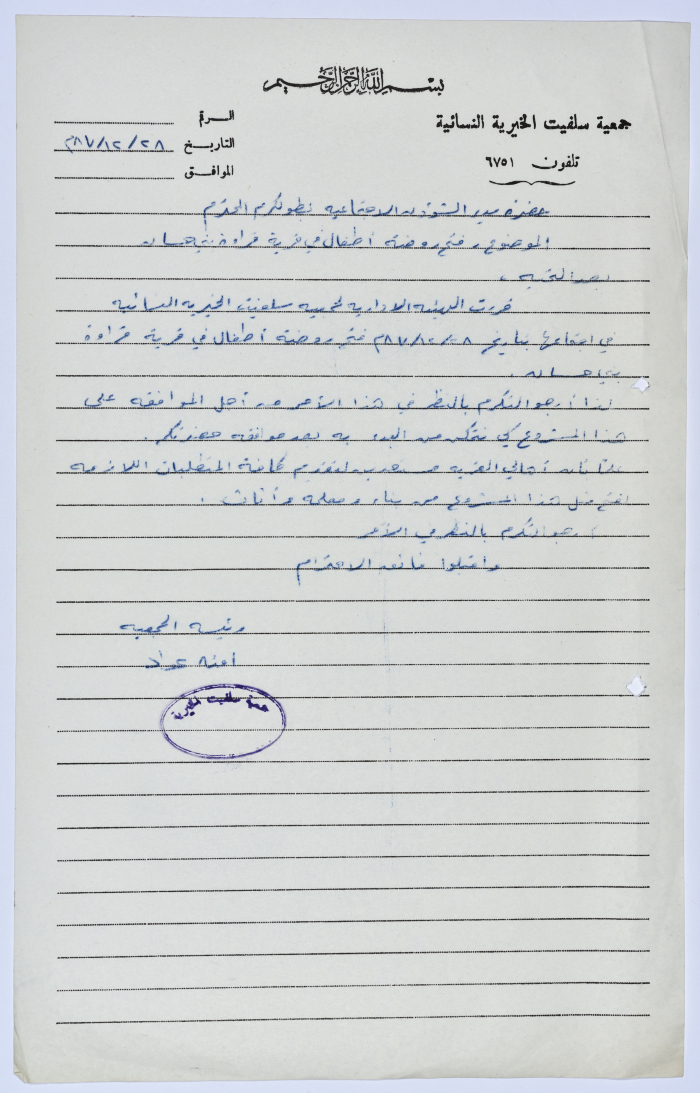 بسم الله الرحمن الرحيم
جمعية سلفيت الخيرية النسائية
تلفون ٦٧٥١
الرقم
التاريخ ٢٨/١٢/٩٨٧م
الموافق
حضرة مدير الشؤون الاجتماعيه بطولكرم المحترم
الموضوع، فتح روضة أطفال في قرية قراوة بني حسان
بعد التحيه،
قررت الهيئه الاداريه لجمعيه سلفيت الخيريه النسائيه
في اجتماعها بتاريخ ٢٨/١٢/٩٨٧م فتح روضة أطفال في قرية قراوة
بني حسان.
لذا أرجو التكرم بالنظر في هذا الأمر من أجل الموافقه على
هذا المشروع كي نتمكن من البدء به بعد موافقه حضرتكم.
علمًا بان أهالي القريه مستعدين لتقديم كافة المتطلبات اللازمه
لفتح مثل هذا المشروع من بناء ومعلمه وأثاث.
أرجو التكرم بالنظر في الأمر
واقبلوا فائق الاحترام
رئيسه الجمعيه
آمنه عواد
جمعية سلفيت الخيرية